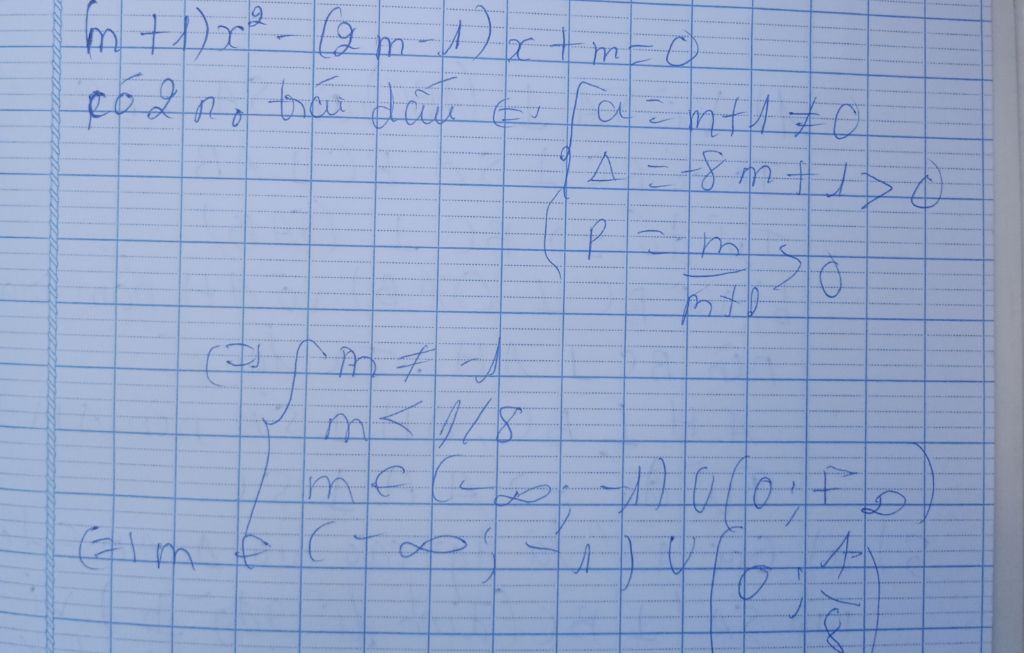 (m + 1)x² - (2m - 1)x + m = 0
có 2 n₀ trái dấu ⇔ { a = m + 1 ≠ 0
Δ = -8m + 1 > 0
P = m/(m+1) > 0
(=) { m ≠ -1
m < 1/8
m ∈ (-∞; -1) ∪ (0; +∞)
(=) m ∈ (-∞; -1) ∪ (0; 1/8)